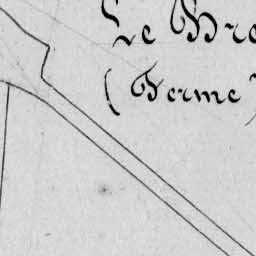 Le Bre
(Ferme)